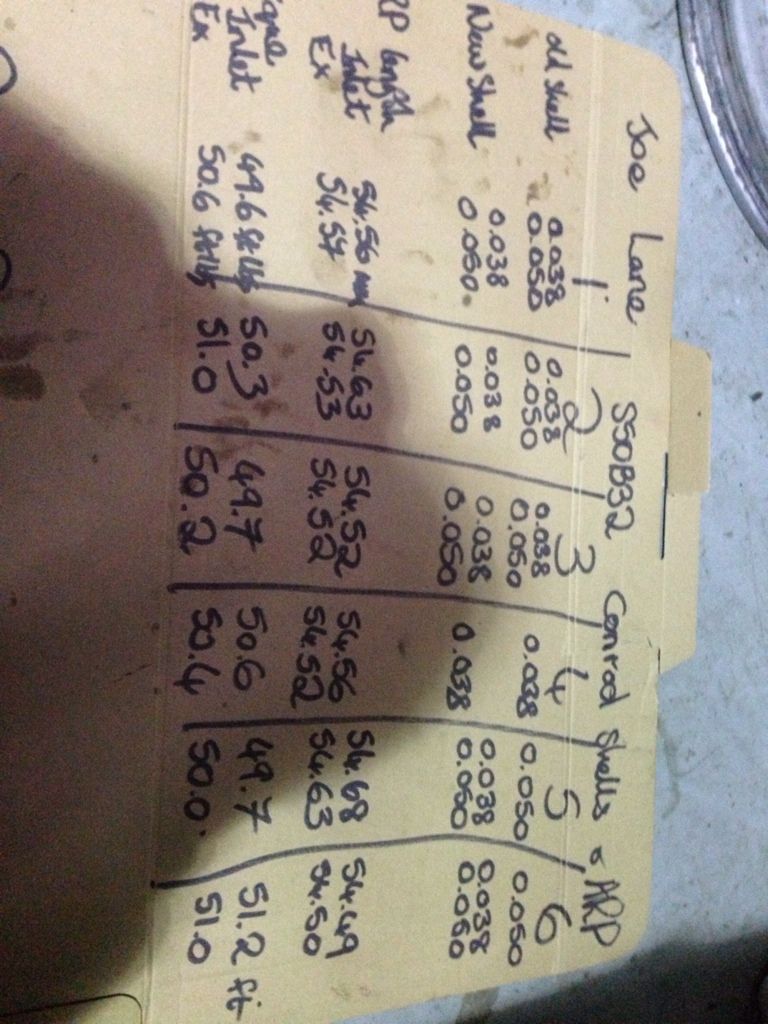 Joe Lane S50B32 Conrod Shells & ARP
1 2 3 4 5 6
old shell 0.038 0.038 0.038 0.038 0.050 0.050
0.050 0.050 0.050
New Shell 0.038 0.038 0.038 0.038 0.038 0.038
0.050 0.050 0.050 0.050 0.050
RP length
Inlet 54.56 mm 54.63 54.52 54.56 54.68 54.49
Ex 54.57 54.53 54.52 54.52 54.63 54.50
rque
Inlet 49.6 ft lbs 50.3 49.7 50.6 49.7 51.2 ft
Ex 50.6 ft lbs 51.0 50.2 50.4 50.0 51.0